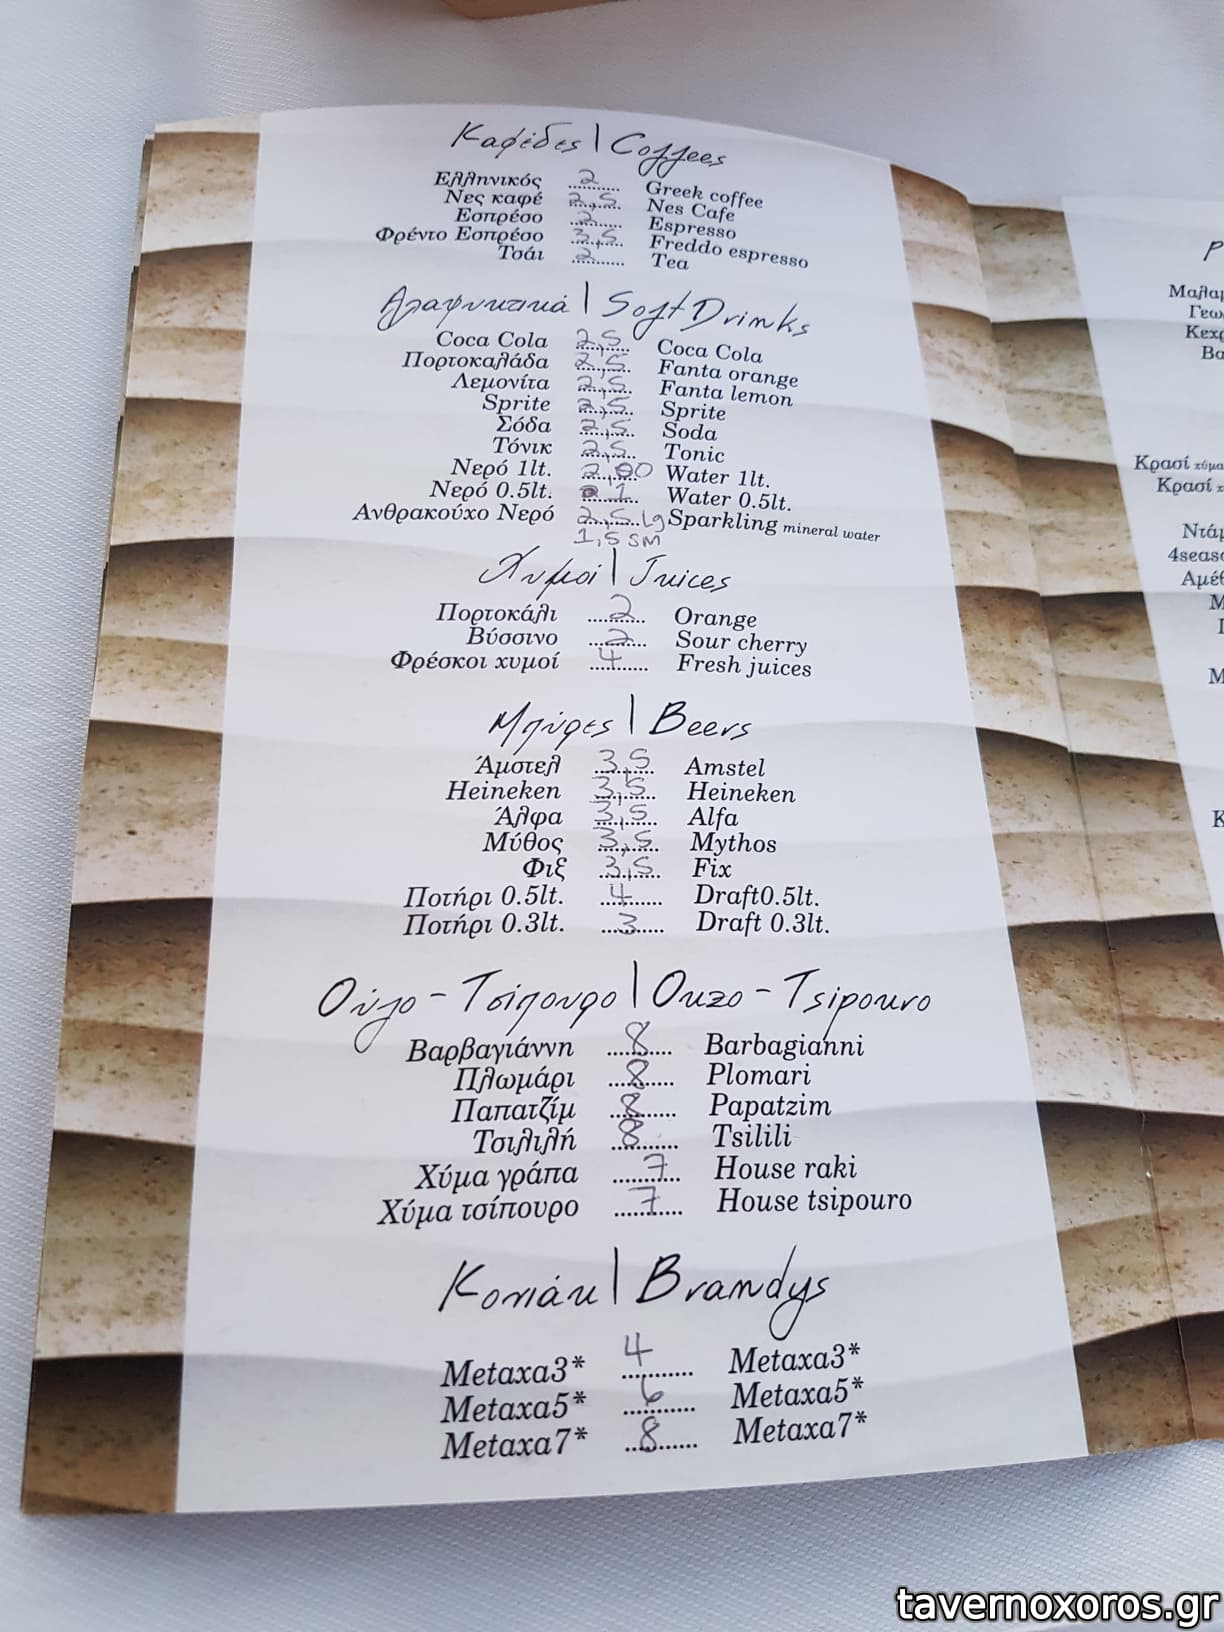 Καφέδες | Coffees
Ελληνικός 2 Greek coffee
Νες καφέ 2,5 Nes Cafe
Εσπρέσο 2 Espresso
Φρέντο Εσπρέσο 3,5 Freddo espresso
Τσάι 2 Tea
Αναψυκτικά | Soft Drinks
Coca Cola 2,5 Coca Cola
Πορτοκαλάδα 2,5 Fanta orange
Λεμονίτα 2,5 Fanta lemon
Sprite 2,5 Sprite
Σόδα 2,5 Soda
Τόνικ 2,5 Tonic
Νερό 1lt. 2,00 Water 1lt.
Νερό 0.5lt. 1 Water 0.5lt.
Ανθρακούχο Νερό 2,5 Lg Sparkling mineral water
1,5 SM
Χυμοί | Juices
Πορτοκάλι 2 Orange
Βύσσινο 2 Sour cherry
Φρέσκοι χυμοί 4 Fresh juices
Μπύρες | Beers
Άμστελ 3,5 Amstel
Heineken 3,5 Heineken
Άλφα 3,5 Alfa
Μύθος 3,5 Mythos
Φιξ 3,5 Fix
Ποτήρι 0.5lt. 4 Draft0.5lt.
Ποτήρι 0.3lt. 3 Draft 0.3lt.
Ούζο - Τσίπουρο | Ouzo - Tsipouro
Βαρβαγιάννη 8 Barbagianni
Πλωμάρι 8 Plomari
Παπατζίμ 8 Papatzim
Τσιλιλή 8 Tsilili
Χύμα γράπα 7 House raki
Χύμα τσίπουρο 7 House tsipouro
Κονιάκ | Brandys
Metaxa3* 4 Metaxa3*
Metaxa5* 6 Metaxa5*
Metaxa7* 8 Metaxa7*
Κρασί χύμα
Κρασί
tavernoxoros.gr